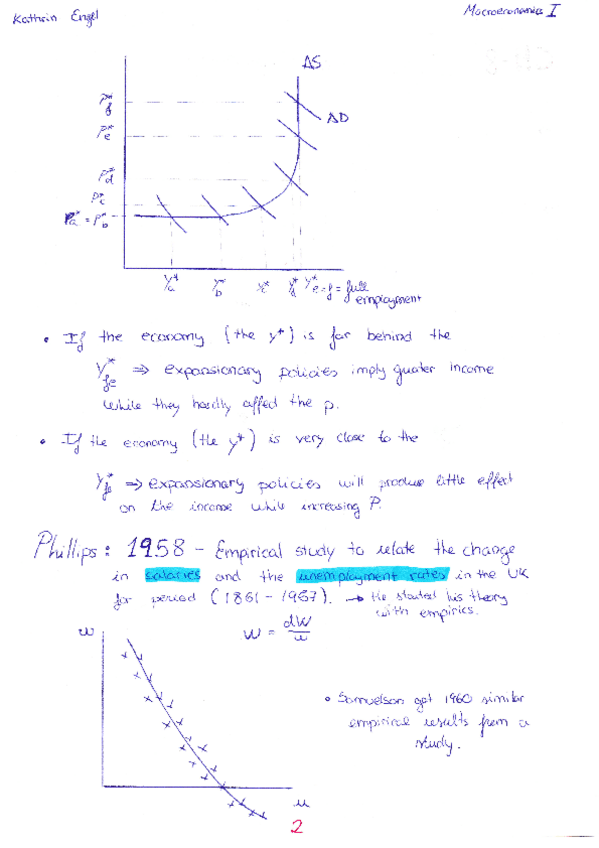 Kathrin Engel
Macroeconomics I
AS
AD
P*f
P*e
P*d
P*c
P*a = P*b
Y*a Y*b Y*c Y*d Y*e=f = full
employment
• If the economy (the y*) is far behind the
Y*fe ⇒ expansionary policies imply greater income
while they hardly affect the p.
• If the economy (the y*) is very close to the
Y*fe ⇒ expansionary policies will produce little effect
on the income while increasing P.
Phillips: 1958 - Empirical study to relate the change
in salaries and the unemployment rates in the UK
for period (1861 - 1957). → He started his theory
with empirics.
w
W = dW/w
• Samuelson got 1960 similar
empirical results from a
study.
u
2